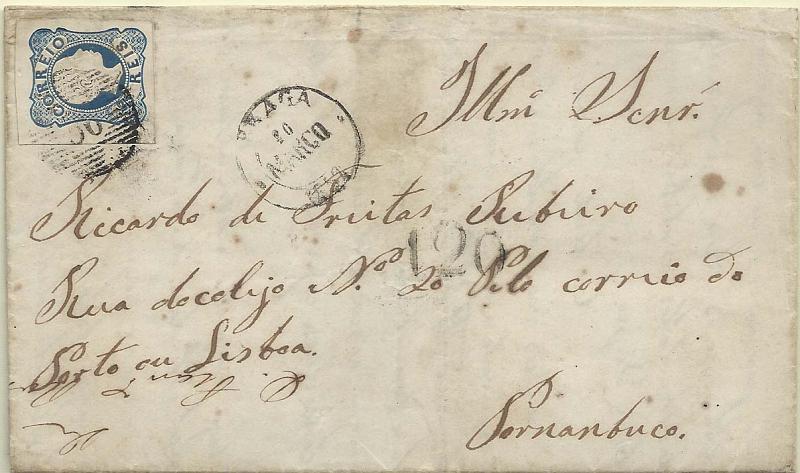 CORREIO REIS
BRAGA
26
MARÇO
Illmo Senr.
Riccardo de Freitas Rubiiro
120
Rua docolijo No. 20 Pelo correio do
Porto ou Lisboa.
Pernanbuco.